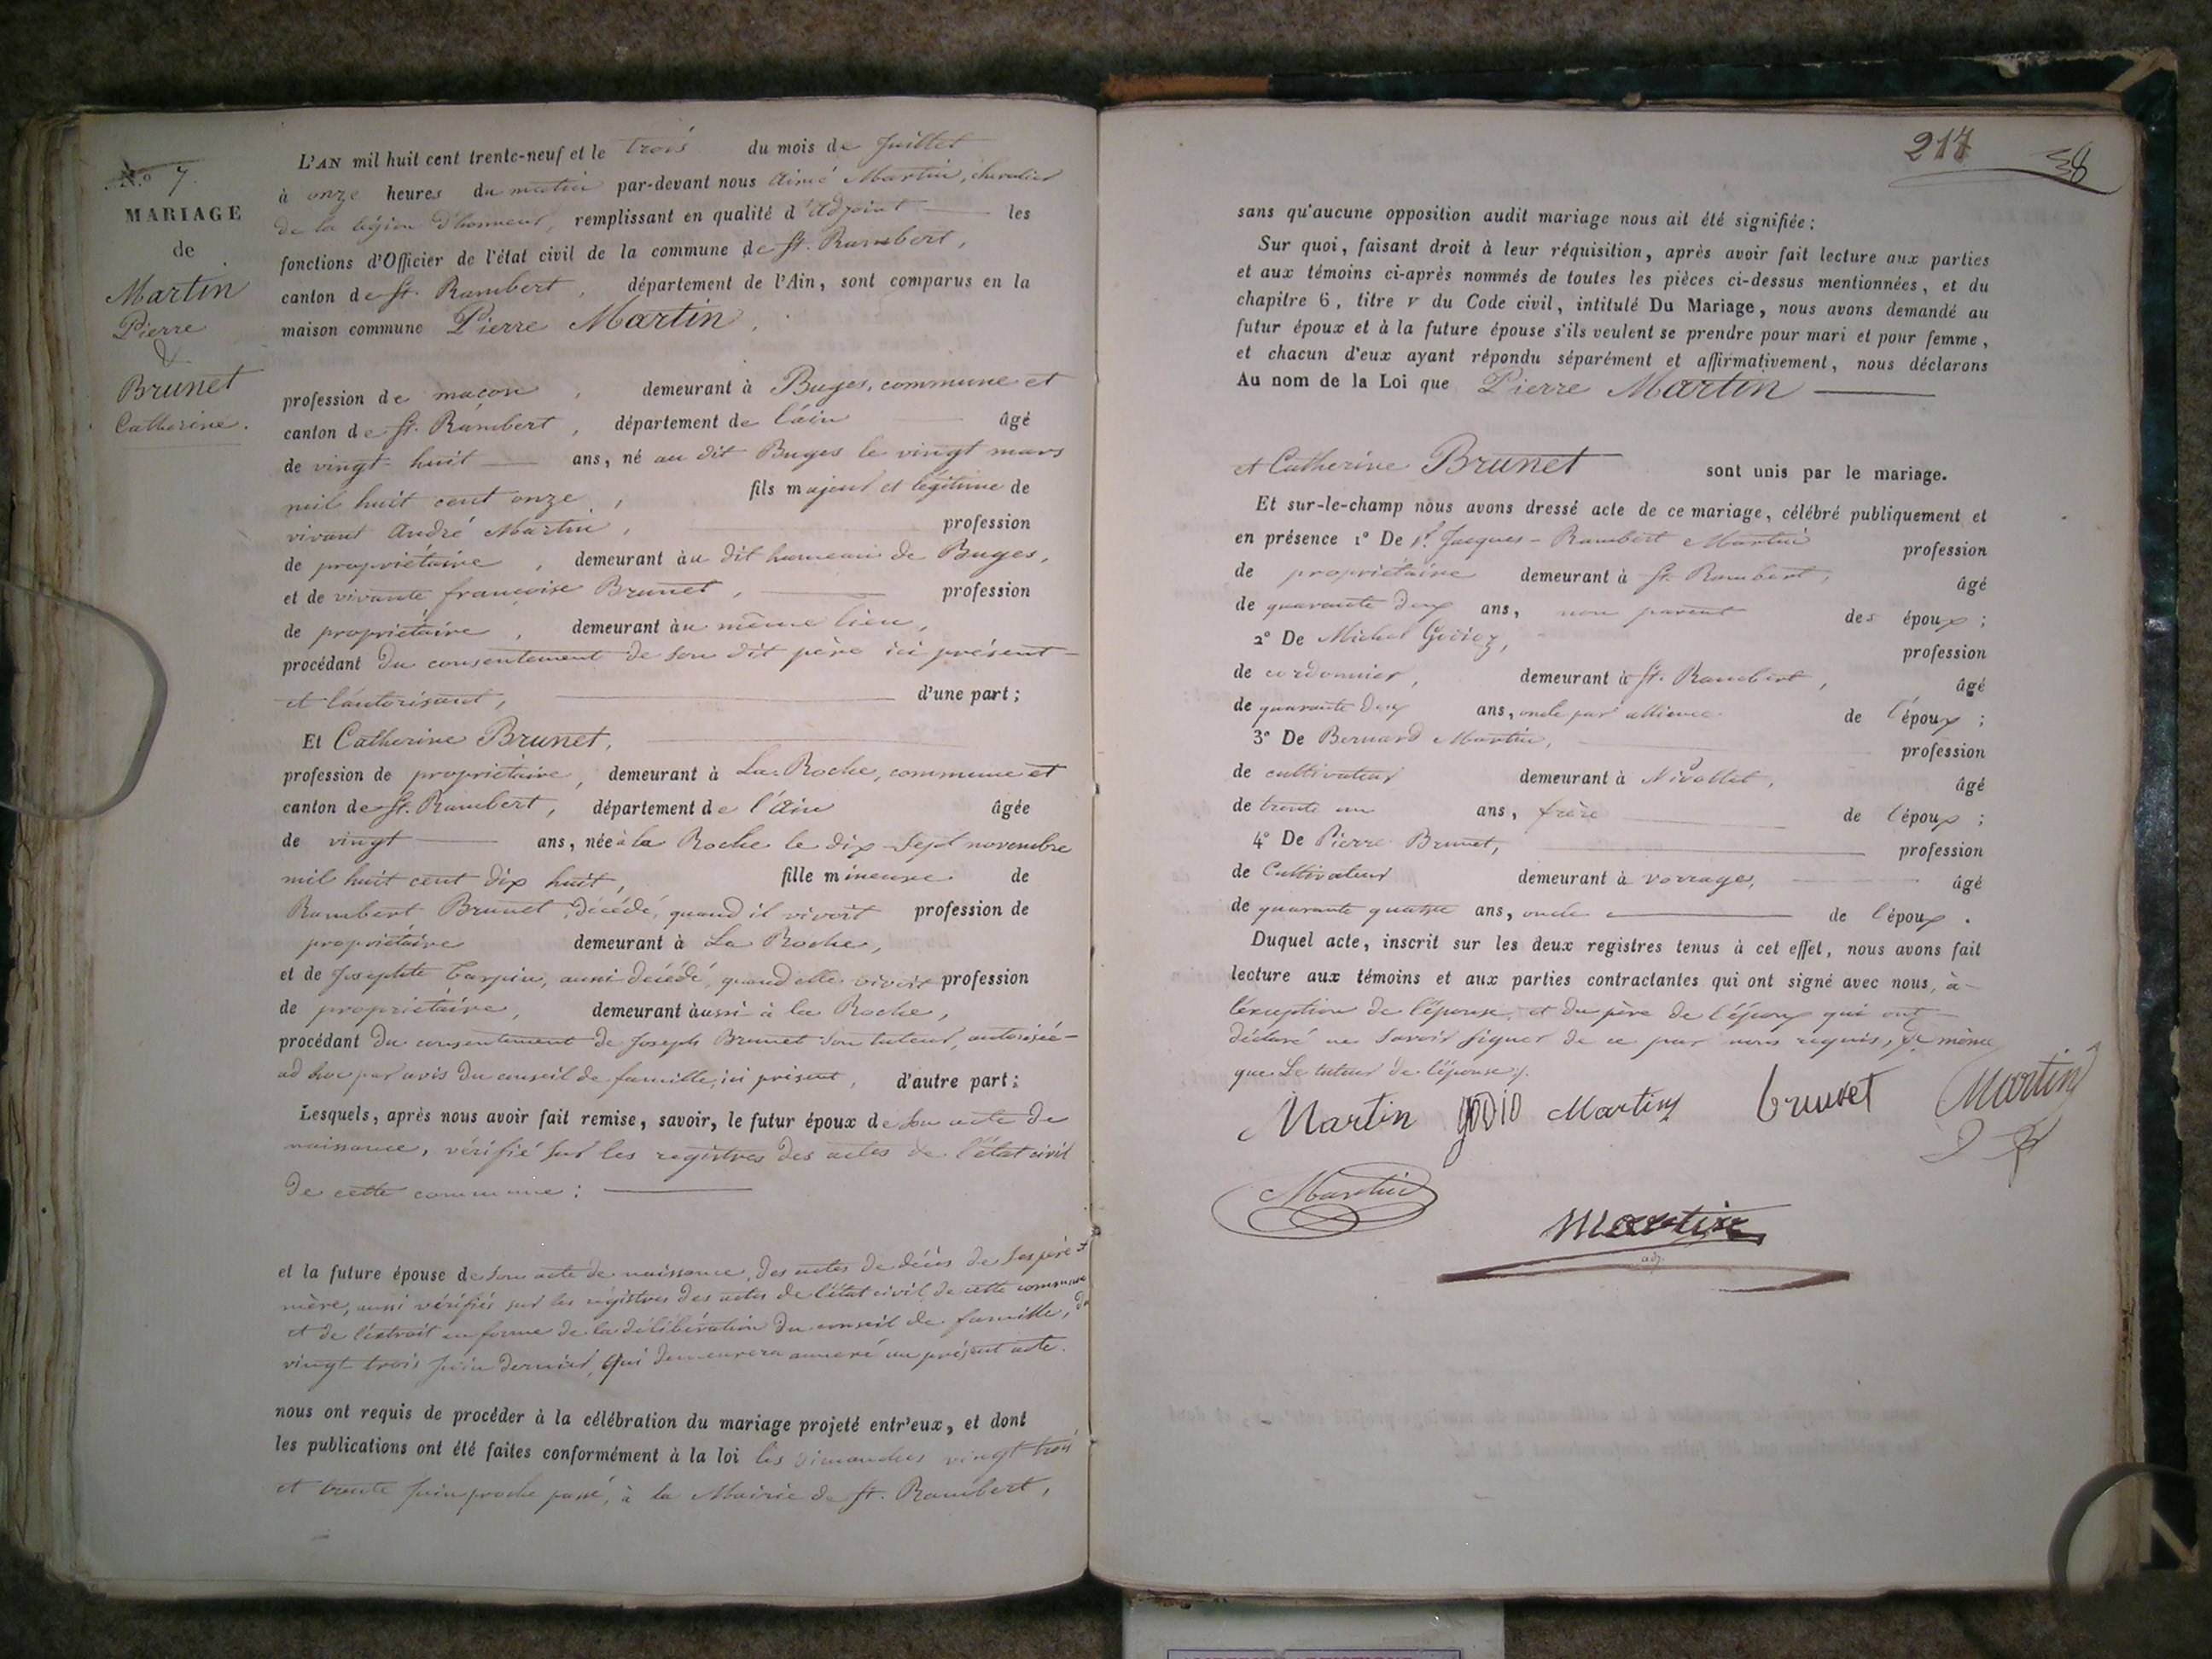 N.o 7
MARIAGE
de
Martin
Pierre
&
Brunet
Catherine.
L'AN mil huit cent trente-neuf et le trois du mois de Juillet
à onze heures du matin par-devant nous Aimé Martin, chevalier
de la légion d'honneur, remplissant en qualité d'Adjoint les
fonctions d'Officier de l'état civil de la commune de St. Rambert,
canton de St. Rambert, département de l'Ain, sont comparus en la
maison commune Pierre Martin,
profession de maçon, demeurant à Buges, commune et
canton de St. Rambert, département de l'ain âgé
de vingt-huit ans, né au dit Buges le vingt mars
mil huit cent onze, fils majeur et légitime de
vivant André Martin, profession
de propriétaire, demeurant àu dit hameau de Buges,
et de vivante françoise Brunet, profession
de propriétaire, demeurant àu même lieu,
procédant du consentement de son dit père ici présent
et l'autorisant, d'une part;
Et Catherine Brunet,
profession de propriétaire, demeurant à La Roche, commune et
canton de St. Rambert, département de l'Ain âgée
de vingt ans, née à la Roche le dix-sept novembre
mil huit cent dix huit, fille mineure de
Rambert Brunet, décédé, quand il vivoit profession de
propriétaire demeurant à La Roche,
et de Josephte Carpin, aussi décédé, quand elle vivoit profession
de propriétaire, demeurant àussi à la Roche,
procédant du consentement de Joseph Brunet son tuteur, autorisée
ad hoc par avis du conseil de famille, ici présent, d'autre part;
Lesquels, après nous avoir fait remise, savoir, le futur époux de son acte de
naissance, vérifié sur les registres des actes de l'état civil
de cette commune;
et la future épouse de son acte de naissance, des actes de décès de ses père et
mère, aussi vérifiés sur les registres des actes de l'état civil de cette commune
et de l'extrait en forme de la délibération du conseil de famille, du
vingt trois juin dernier, qui demeurera annexé au présent acte.
nous ont requis de procéder à la célébration du mariage projeté entr'eux, et dont
les publications ont été faites conformément à la loi les dimanches vingt trois
et trente Juin proche passé, à la Mairie de St. Rambert,
217 38
sans qu'aucune opposition audit mariage nous ait été signifiée;
Sur quoi, faisant droit à leur réquisition, après avoir fait lecture aux parties
et aux témoins ci-après nommés de toutes les pièces ci-dessus mentionnées, et du
chapitre 6, titre v du Code civil, intitulé Du Mariage, nous avons demandé au
futur époux et à la future épouse s'ils veulent se prendre pour mari et pour femme,
et chacun d'eux ayant répondu séparément et affirmativement, nous déclarons
Au nom de la Loi que Pierre Martin
et Catherine Brunet sont unis par le mariage.
Et sur-le-champ nous avons dressé acte de ce mariage, célébré publiquement et
en présence 1º De Sr. Jacques-Rambert Martin profession
de propriétaire demeurant à St. Rambert, âgé
de quarante deux ans, non parent des époux;
2º De Michel Godioz, profession
de cordonnier, demeurant à St. Rambert, âgé
de quarante deux ans, oncle par alliance de l'époux;
3º De Bernard Martin, profession
de cultivateur demeurant à Nivollet, âgé
de trente un ans, frère de l'époux;
4º De Pierre Brunet, profession
de Cultivateur demeurant à vorrages, âgé
de quarante quatre ans, oncle de l'époux.
Duquel acte, inscrit sur les deux registres tenus à cet effet, nous avons fait
lecture aux témoins et aux parties contractantes qui ont signé avec nous, à
l'exception de l'épouse, et du père de l'époux qui ont
déclaré ne savoir signer de ce par nous requis, de même
que Le tuteur de l'épouse.
Martin godio Martin brunet Martin
Martin
Martin
adj.